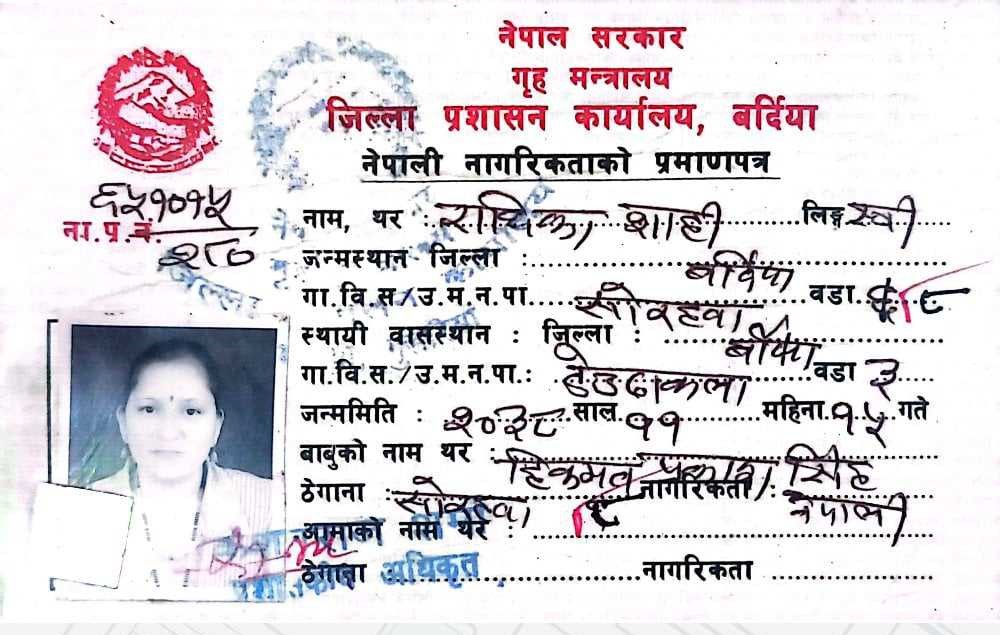 नेपाल सरकार
गृह मन्त्रालय
जिल्ला प्रशासन कार्यालय, बर्दिया
नेपाली नागरिकताको प्रमाणपत्र
ना.प्र.नं. ६५१०१५/२८०
नाम, थर : राधिका शाही लिङ्ग स्त्री
जन्मस्थान जिल्ला : बर्दिया
गा.वि.स./उ.म.न.पा. सोरहवा वडा ८
स्थायी वासस्थान : जिल्ला : बर्दिया
गा.वि.स./उ.म.न.पा.: वडा ३
जन्ममिति : २०३८ साल ११ महिना १५ गते
बाबुको नाम थर : हिकमत प्रकाश सिंह
ठेगाना : सोरहवा ८ नागरिकता : नेपाली
आमाको नाम थर :
ठेगाना नागरिकता
अधिकृत